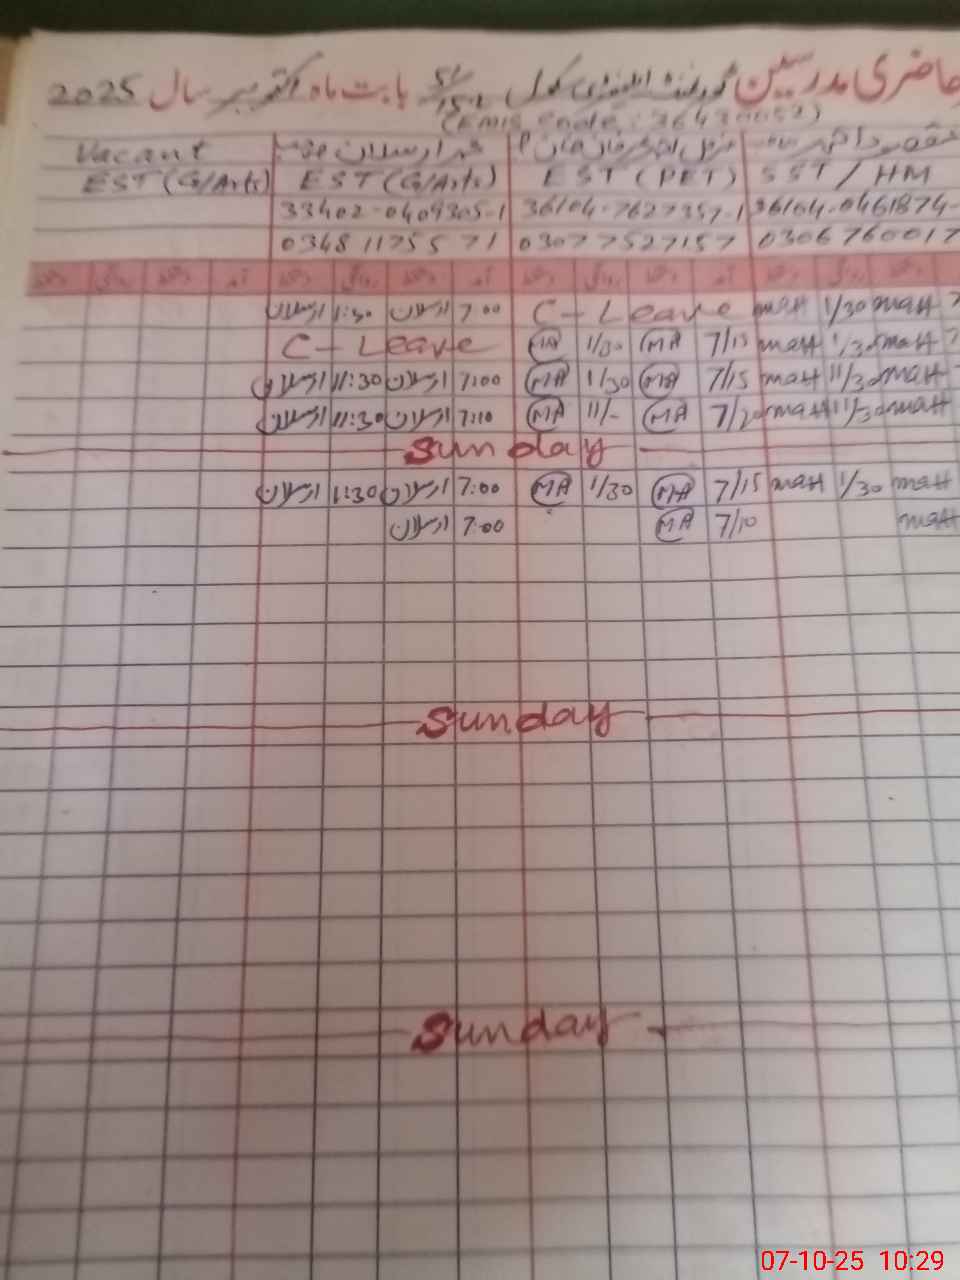 حاضری مدرسین گورنمنٹ ایلیمنٹری سکول 51/15.L بابت ماہ اکتوبر سال 2025
(Emis Code: 36430052)
Vacant
EST (G/Arts) EST (G/Arts) EST (PET) SST / HM
33402-0409305-1 36104-7627357-1 36104-0461874-
0348 1175571 03077527157 0306760017
آمد دستخط روانگی دستخط آمد دستخط روانگی دستخط آمد دستخط روانگی دستخط
7:00 ارسلان 1:30 ارسلان C-Leave maH 1/30 maH 7
C-Leave MA 1/30 MA 7/15 maH 1/30 maH 7
7:00 ارسلان 11:30 ارسلان MA 1/30 MA 7/15 maH 11/30 maH 7
7:10 ارسلان 11:30 ارسلان MA 11/- MA 7/20 maH 11/30 maH
Sunday
7:00 ارسلان 1:30 ارسلان MA 1/30 MA 7/15 maH 1/30 maH
7:00 ارسلان MA 7/10 maH
Sunday
Sunday
07-10-25 10:29